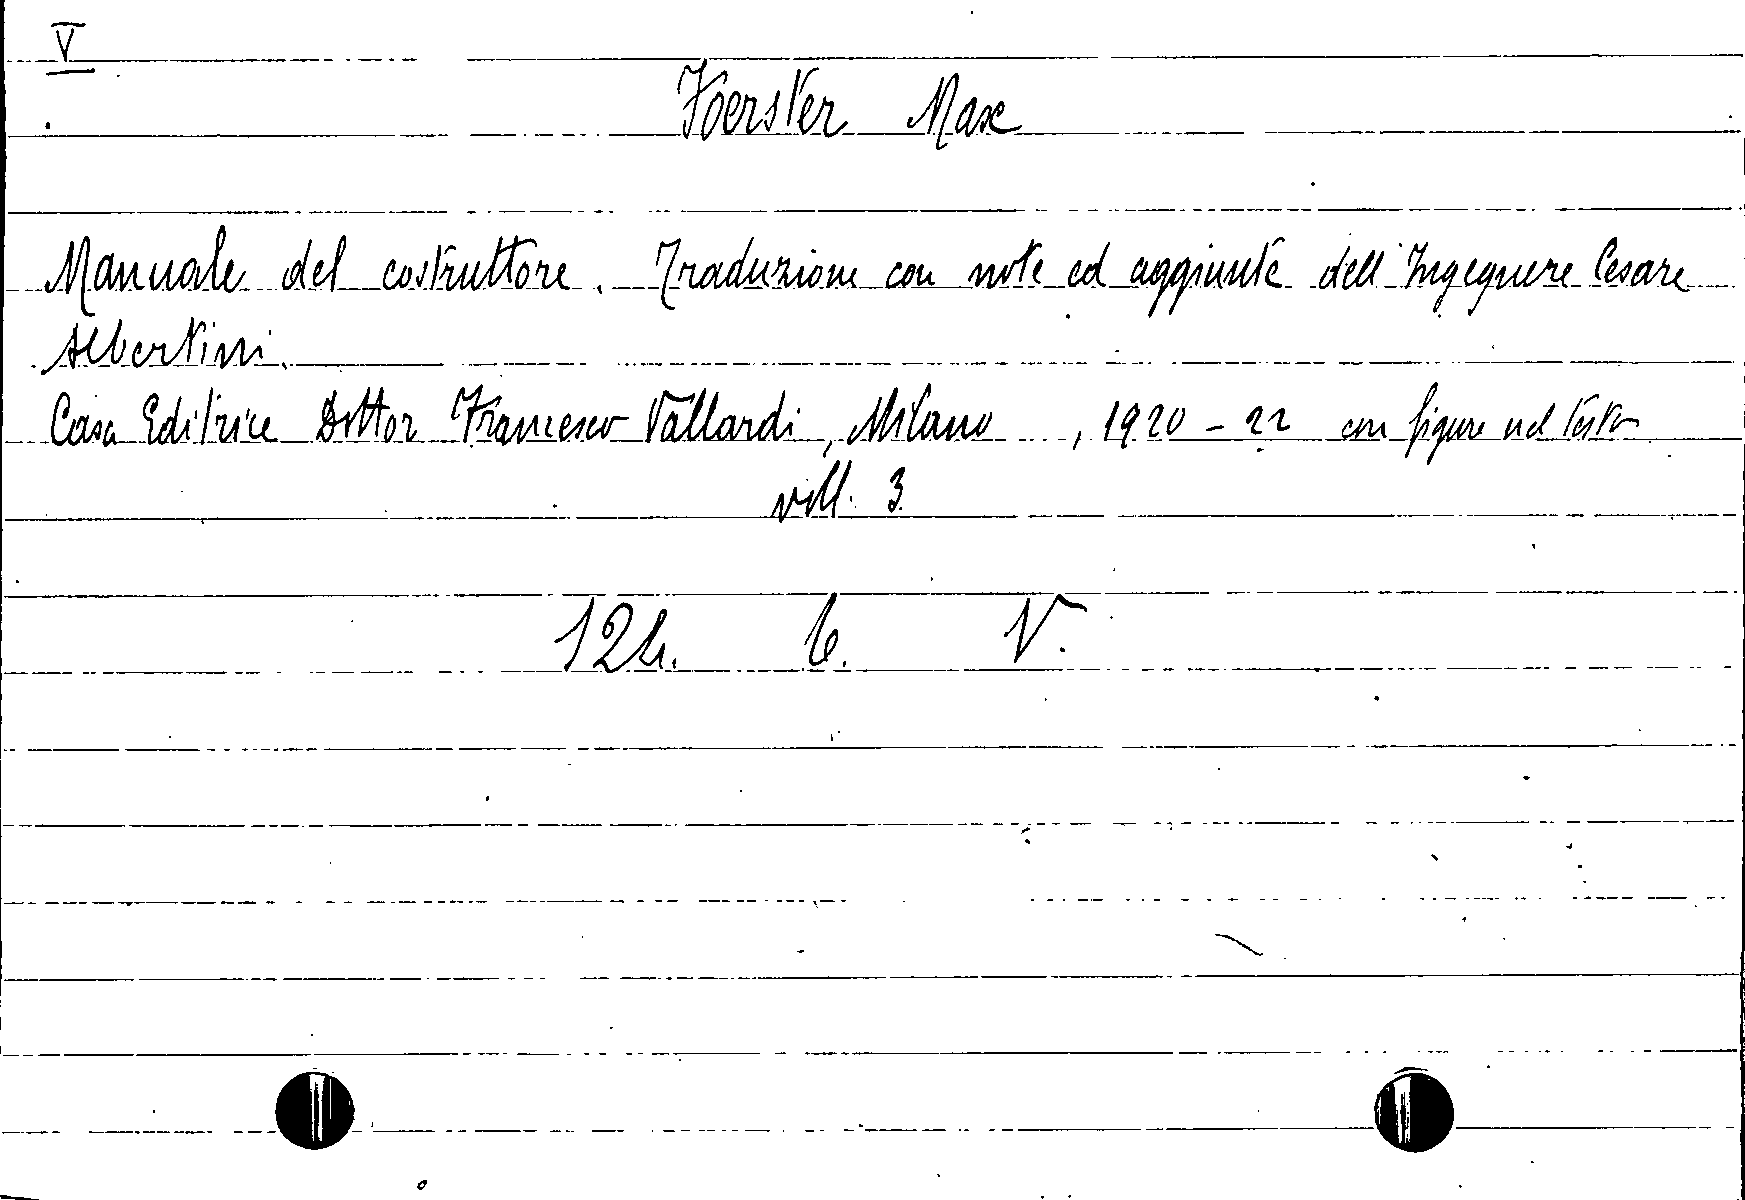 V
Foerster Max
Manuale del costruttore. Traduzione con note ed aggiunte dell'Ingegnere Cesare
Albertini.
Casa Editrice Dottor Francesco Vallardi, Milano , 1920 - 22 con figure nel testo
voll. 3
V.